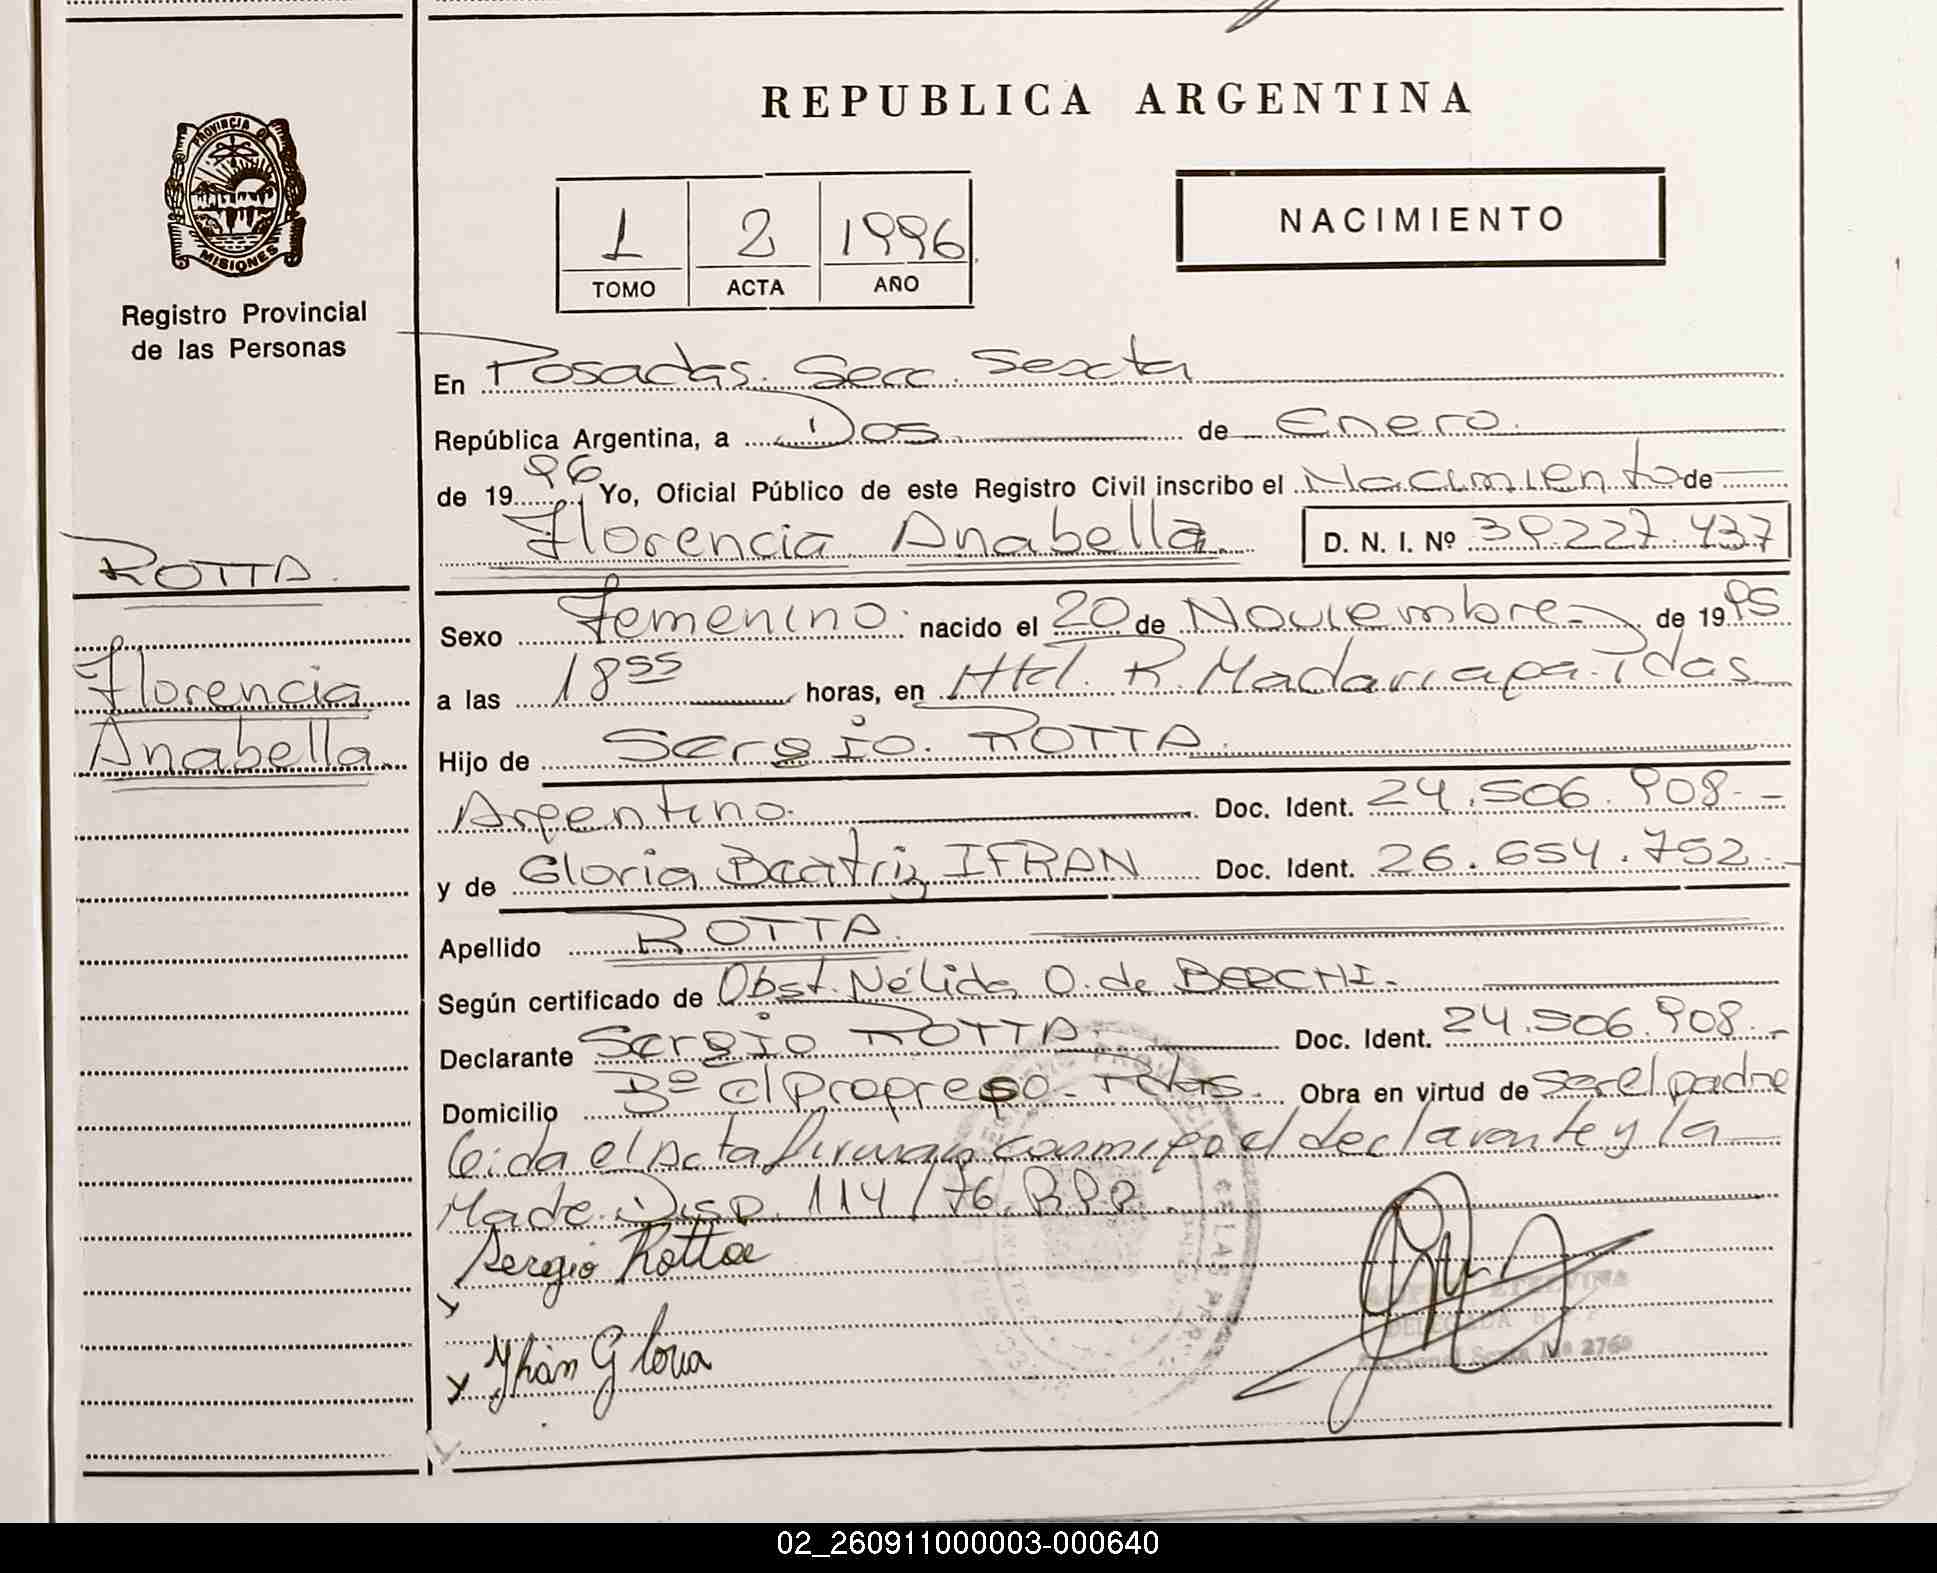 REPUBLICA ARGENTINA
PROVINCIA DE
MISIONES
Registro Provincial
de las Personas
1 2 1996
TOMO ACTA AÑO
NACIMIENTO
En Posadas. Secc. Sexta
República Argentina, a Dos de Enero.
de 1996 Yo, Oficial Público de este Registro Civil inscribo el Nacimiento de
Florencia Anabella. D. N. I. Nº 39.227.437
ROTTA.
Florencia
Anabella.
Sexo Femenino. nacido el 20 de Noviembre de 1995
a las 18 55 horas, en Htal. R. Madariaga. Pdas
Hijo de Sergio. ROTTA.
Argentino. Doc. Ident. 24.506.908.-
y de Gloria Beatriz IFRAN Doc. Ident. 26.654.752.-
Apellido ROTTA.
Según certificado de Obst. Nélida O. de
Declarante Sergio ROTTA. Doc. Ident. 24.506.908.-
Domicilio Bº el Progreso. Pdas. Obra en virtud de ser el padre
Leida el Acta firman conmigo el declarante y la
Madre. Disp. 114/76. R.P.P.
Sergio Rotta
Gloria
DELEGADA R.P.P.
02_260911000003-000640